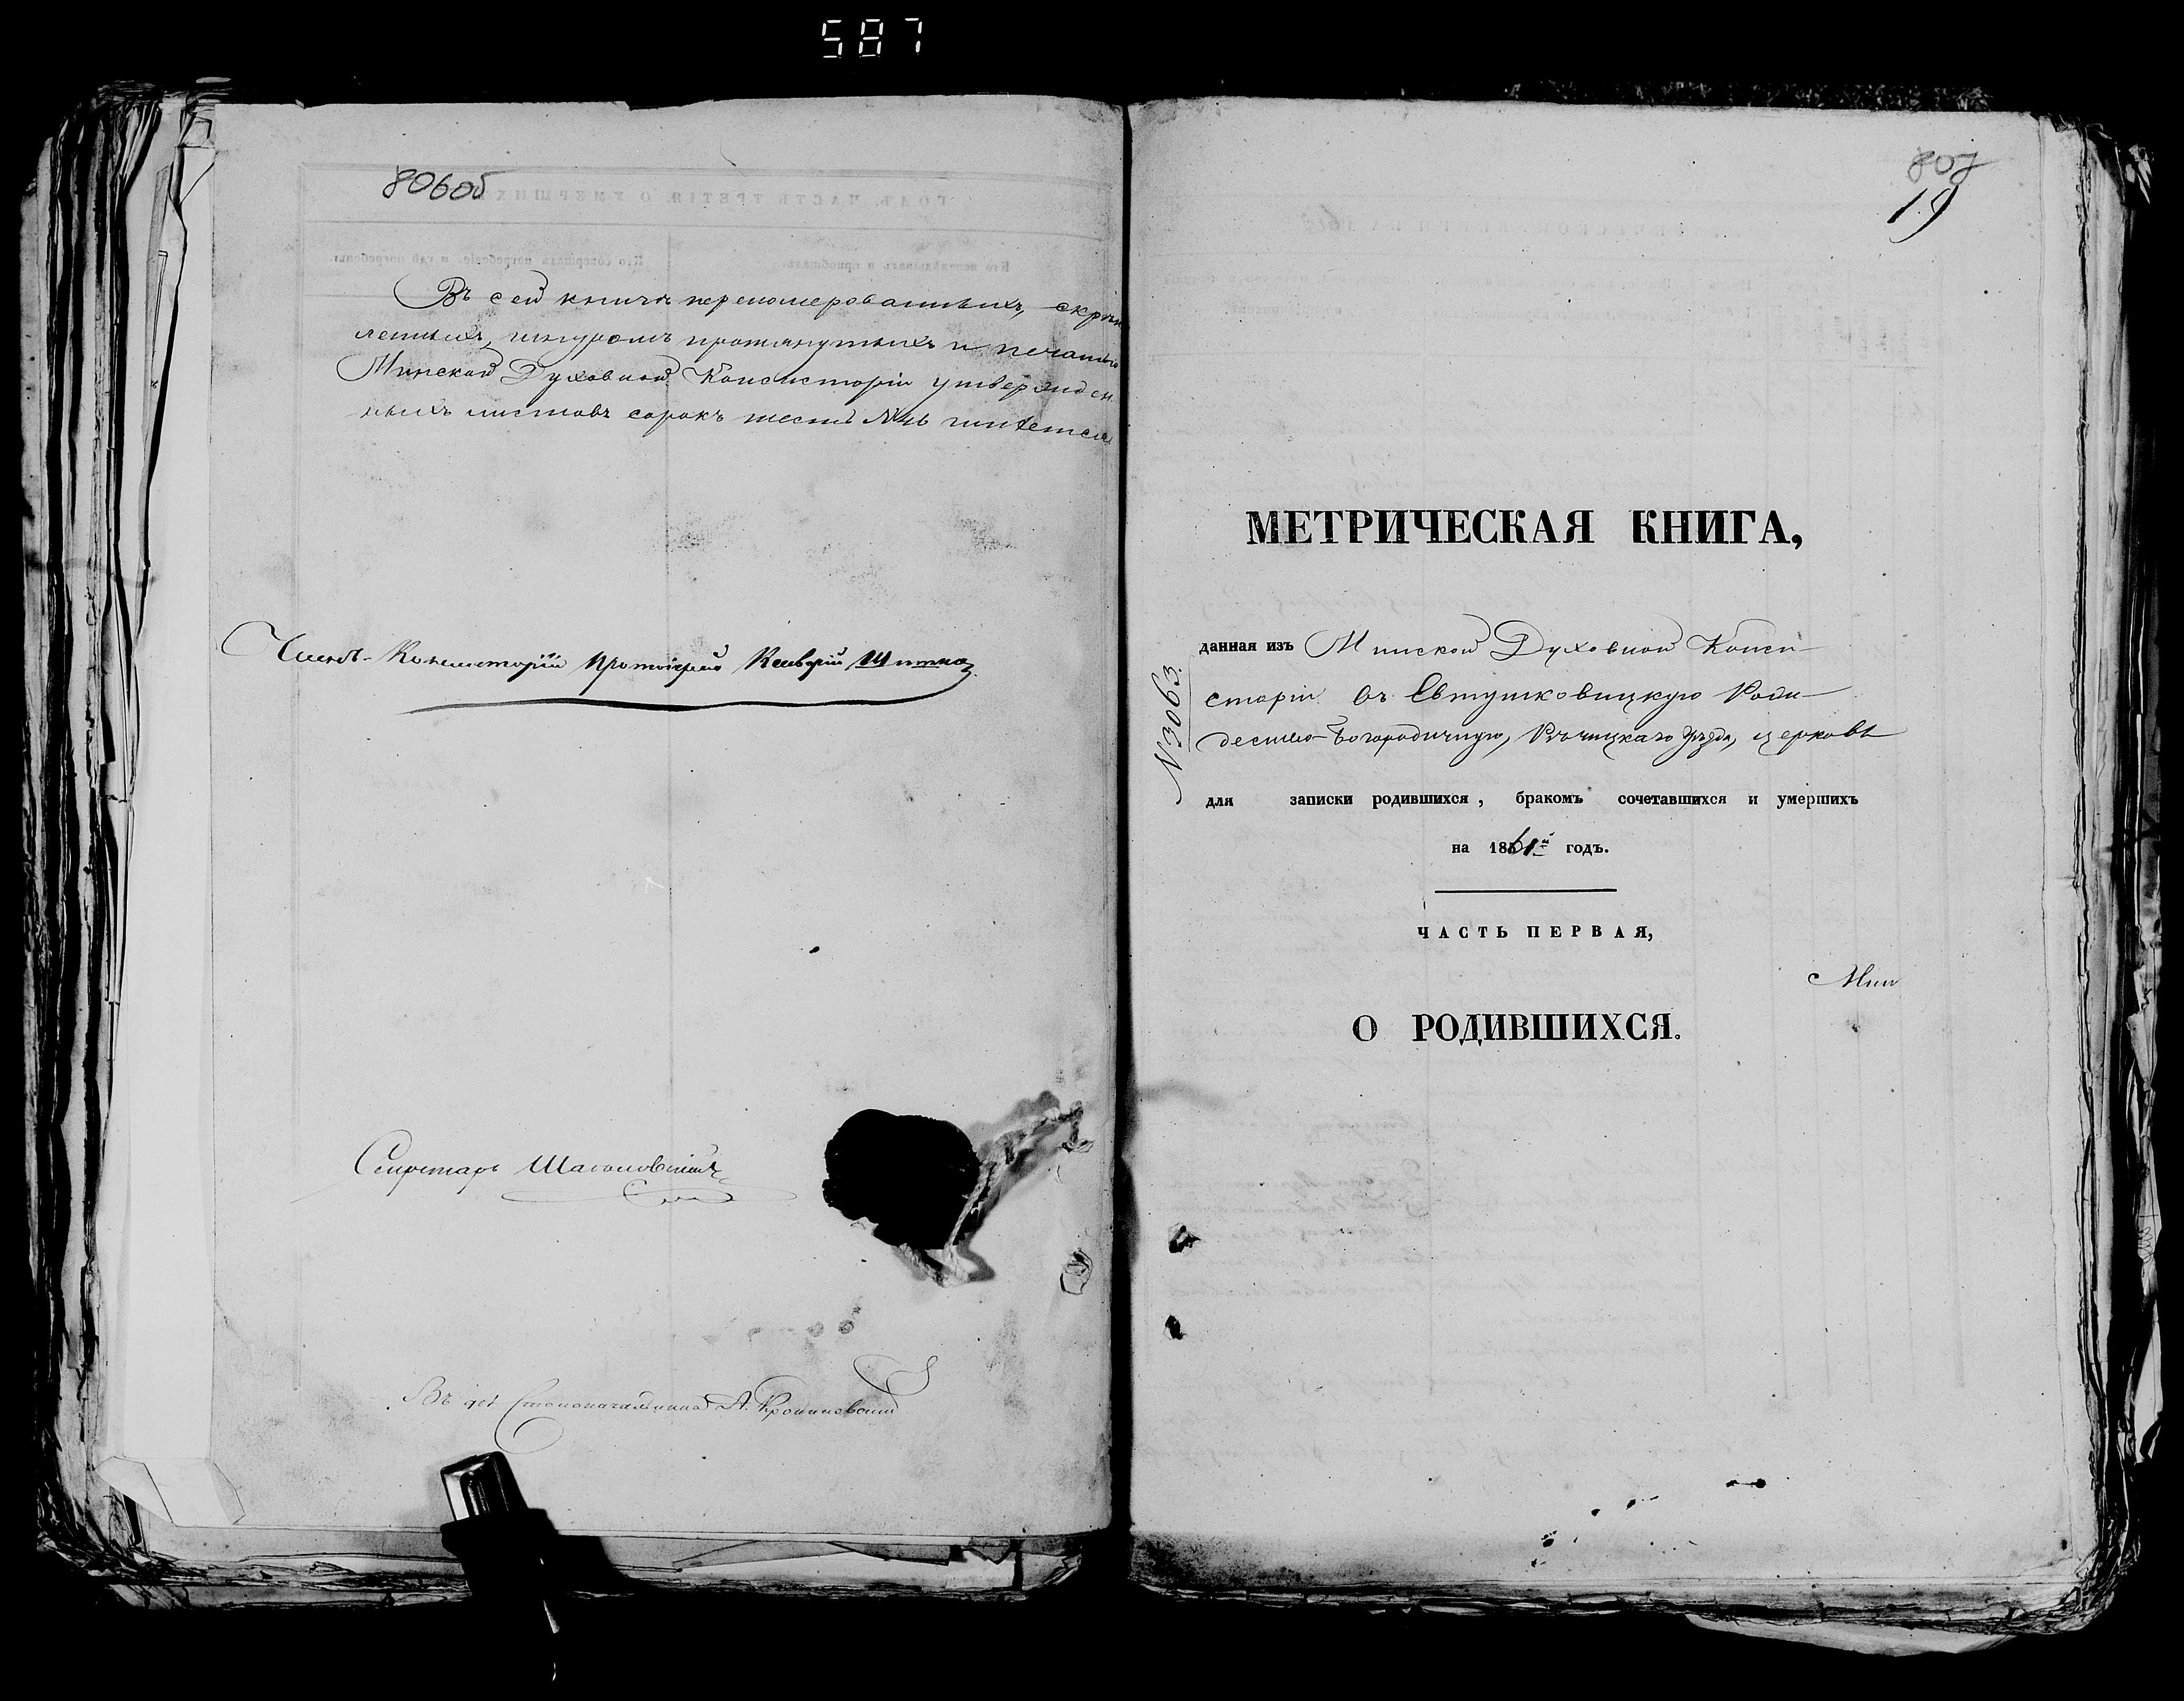 587
806об
Въ сей книгѣ перенумерованныхъ, скрѣп
ленныхъ, шнуромъ протянутыхъ и печатью
Минской Духовной Консисторіи утвержден
ныхъ листовъ сорокъ шесть №46 имѣется
Членъ Консисторіи Протоіерей
Секретарь
Въ дол. Столоначальника А.
807
19
МЕТРИЧЕСКАЯ КНИГА,
данная изъ Минской Духовной Конси-
сторіи въ Евтушковицкую Рож-
дество-Богородичную, Рѣчицкаго уѣзда, церковь
№3063.
для записки родившихся, бракомъ сочетавшихся и умершихъ
на 1861й годъ.
ЧАСТЬ ПЕРВАЯ,
Мин
О РОДИВШИХСЯ.